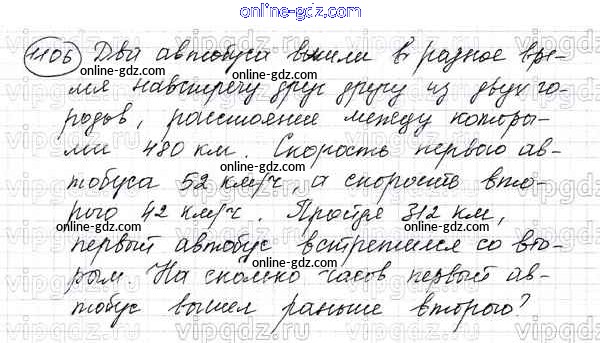 online-gdz.com
1106 Два автобуса вышли в разное вре-
мя навстречу друг другу из двух го-
родов, расстояние между которы-
ми 480 км. Скорость первого ав-
тобуса 52 км/ч, а скорость вто-
рого 42 км/ч. Пройдя 312 км,
первый автобус встретился со вто-
рым. На сколько часов первый ав-
тобус вышел раньше второго?
online-gdz.com
online-gdz.com
online-gdz.com
online-gdz.com
online-gdz.com
online-gdz.com
online-gdz.com
vipgdz.ru
vipgdz.ru
vipgdz.ru